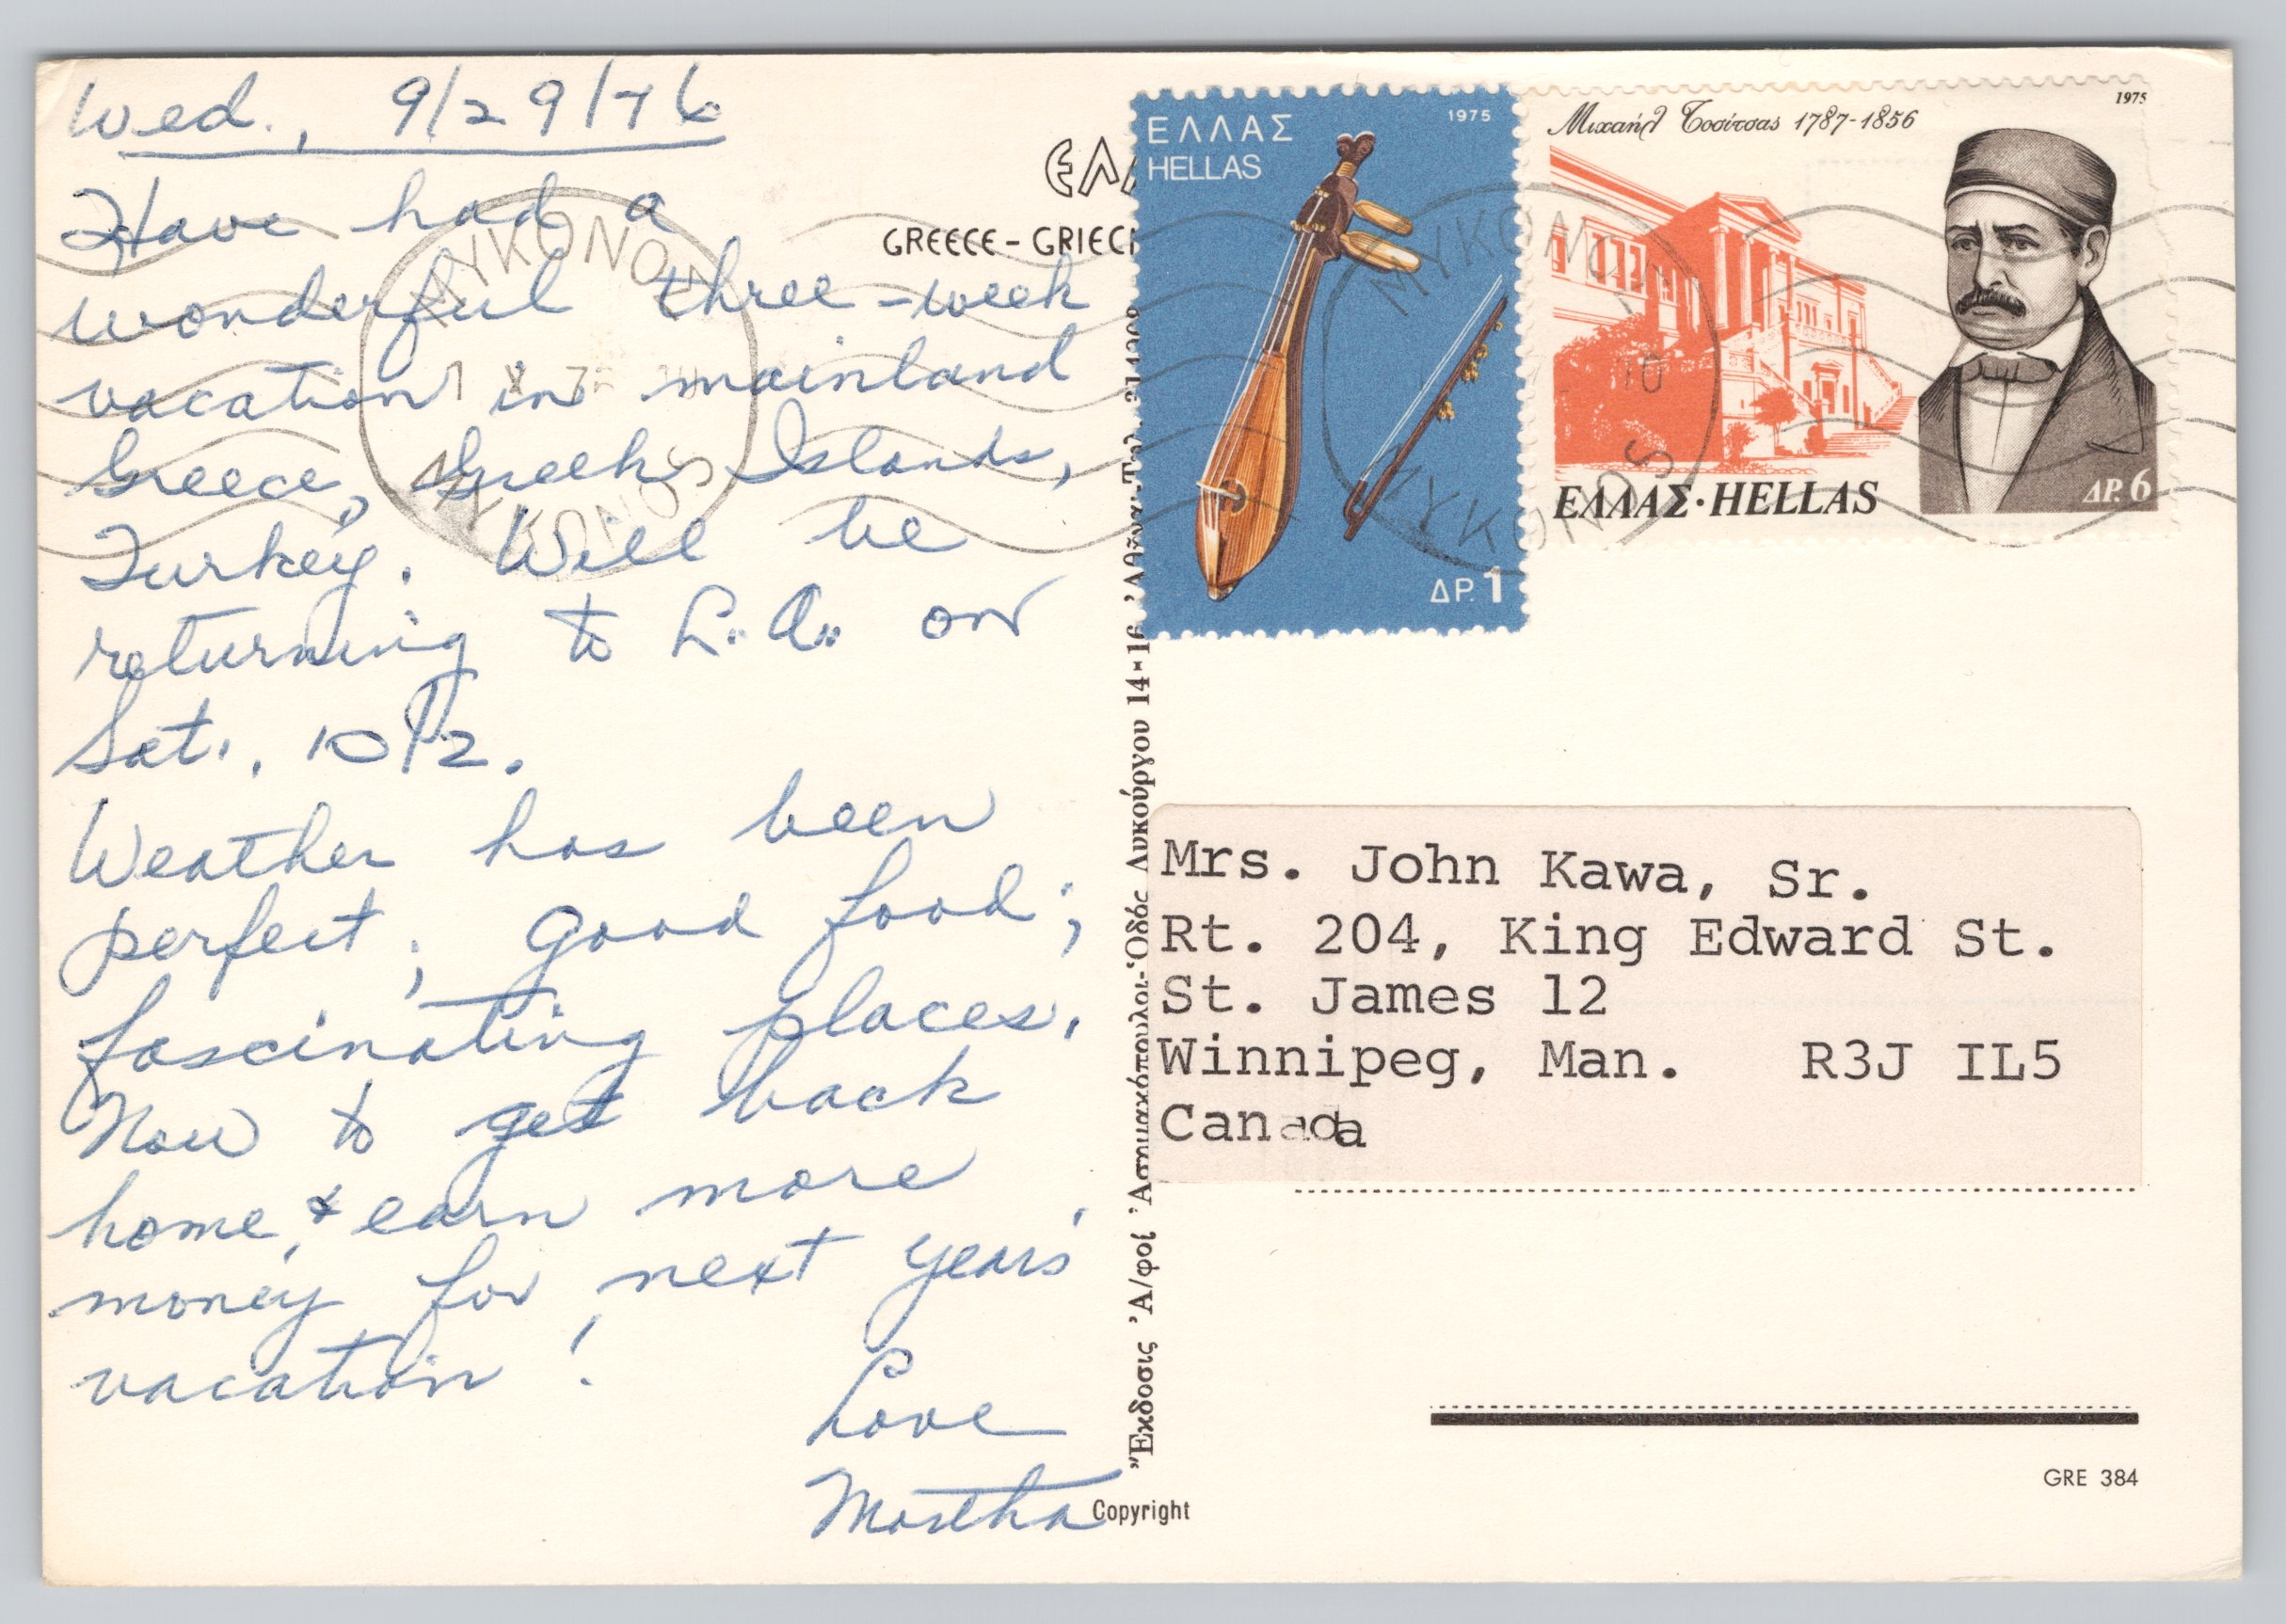 Wed., 9/29/76
Have had a
wonderful three-week
vacation in mainland
Greece, Greek Islands,
Turkey. Will be
returning to L.A. on
Sat., 10/2.
Weather has been
perfect; good food;
fascinating places.
Now to get back
home, & earn more
money for next years'
vacation!
Love
Martha
GREECE - GRIECH
ΕΛΛΑΣ
HELLAS
1975
ΔΡ. 1
Μιχαήλ Τοσίτσας 1787-1856
1975
ΕΛΛΑΣ·HELLAS
ΔΡ. 6
MYKONOS
MYKONOS
Ἔκδοσις Ἀ/φοί Ἀσημακόπουλοι-Ὁδός Λυκούργου 14-16 Ἀθῆναι Τηλ.
Mrs. John Kawa, Sr.
Rt. 204, King Edward St.
St. James 12
Winnipeg, Man. R3J IL5
Canada
GRE 384
Copyright